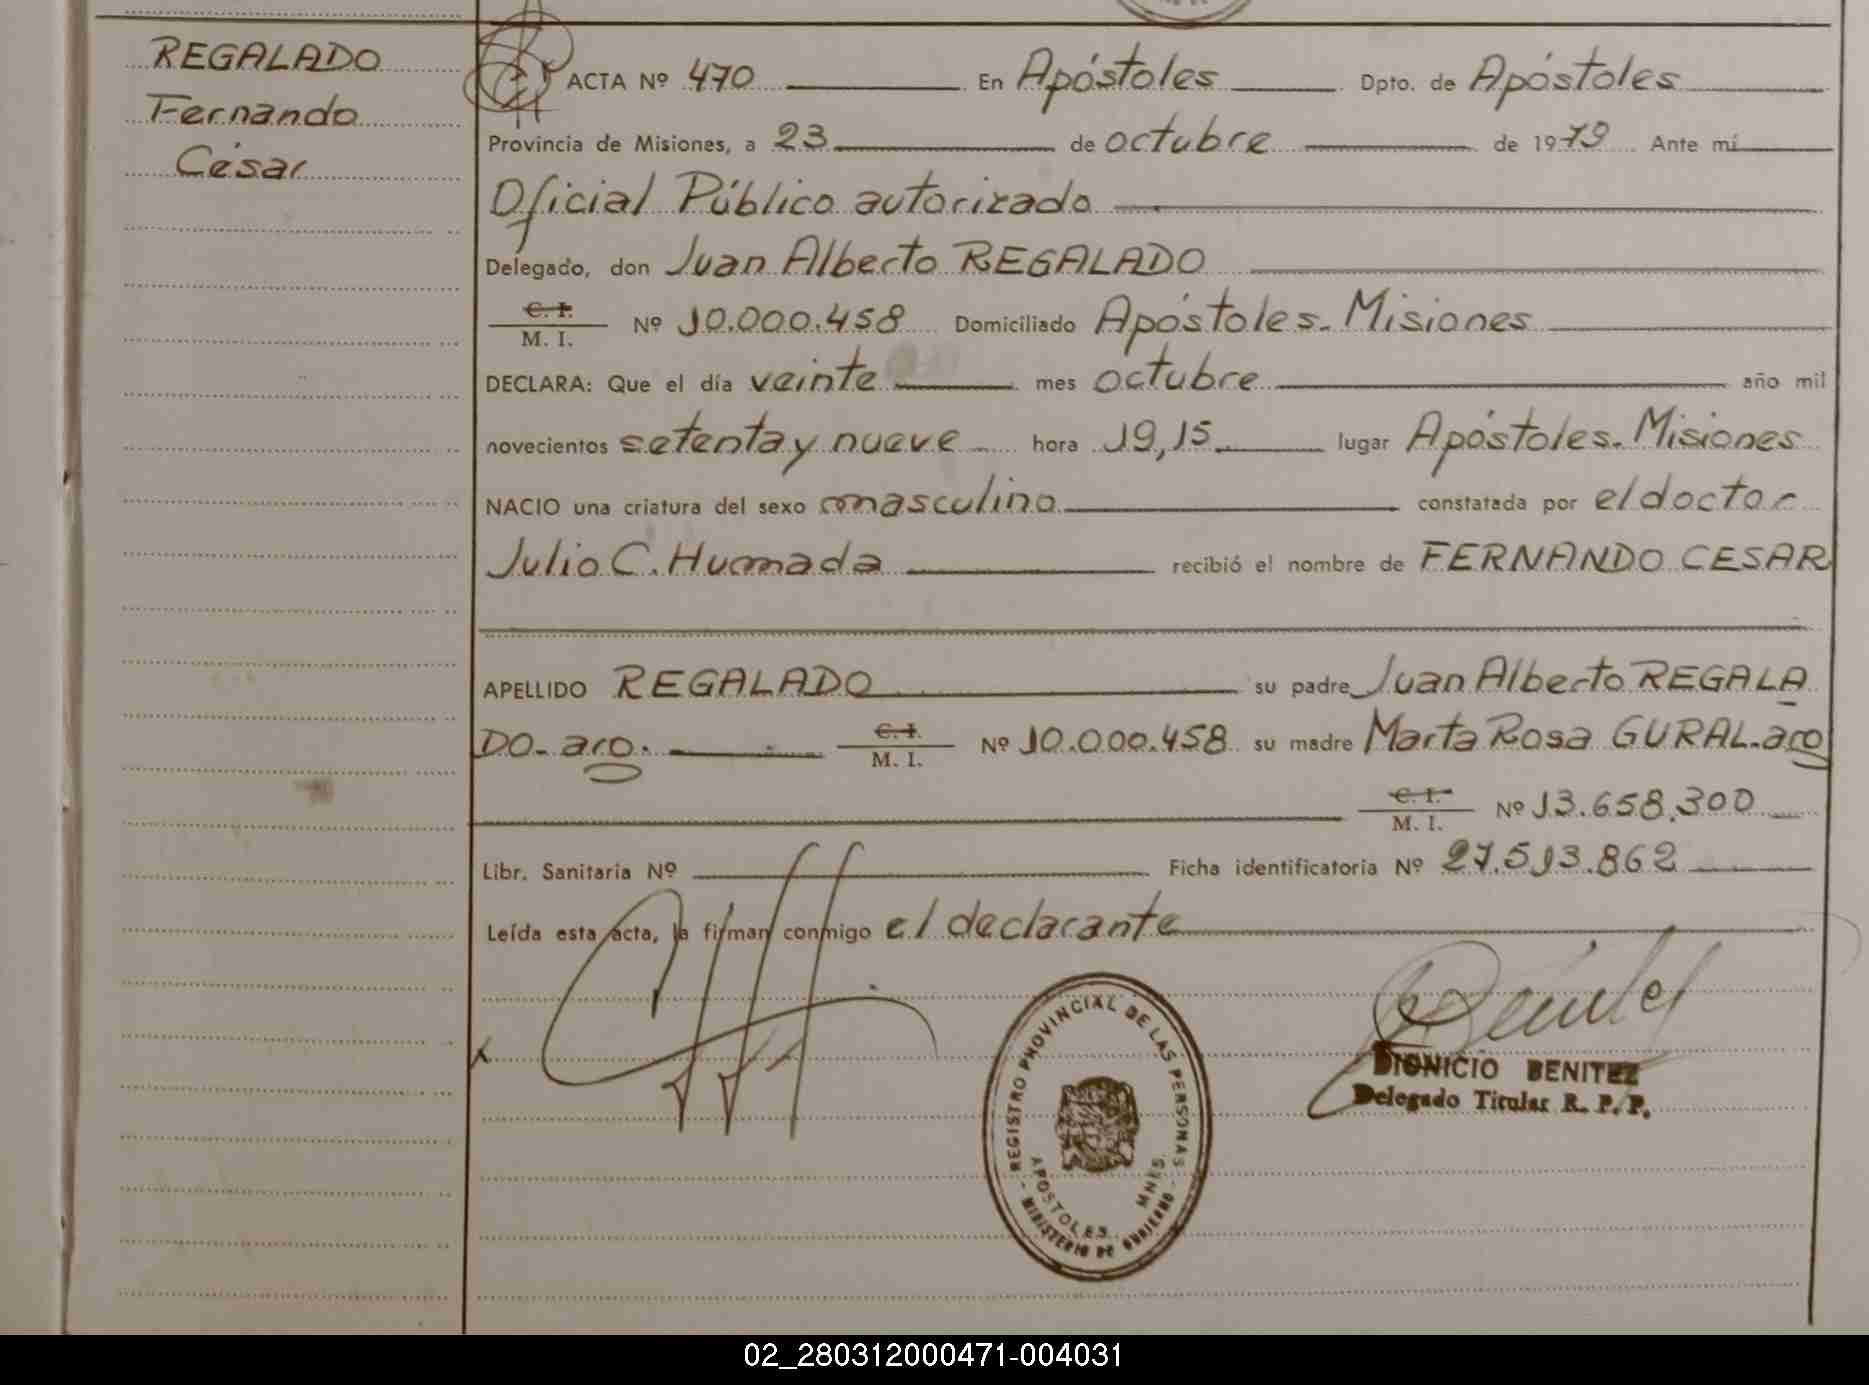 REGALADO
Fernando
César
ACTA Nº 470 En Apóstoles Dpto. de Apóstoles
Provincia de Misiones, a 23 de octubre de 1979 Ante mí
Oficial Público autorizado
Delegado, don Juan Alberto REGALADO
C. I.
M. I. Nº 10.000.458 Domiciliado Apóstoles. Misiones
DECLARA: Que el día veinte mes octubre año mil
novecientos setenta y nueve hora 19,15 lugar Apóstoles. Misiones
NACIO una criatura del sexo masculino constatada por el doctor
Julio C. Humada recibió el nombre de FERNANDO CESAR
APELLIDO REGALADO su padre Juan Alberto REGALA
DO- aro. C. I.
M. I. Nº 10.000.458 su madre Marta Rosa GURAL-aro
C. I.
M. I. Nº 13.658.300
Libr. Sanitaria Nº Ficha identificatoria Nº 27.513.862
Leída esta acta, la firman conmigo el declarante
REGISTRO PROVINCIAL DE LAS PERSONAS
APOSTOLES MNES.
- MINISTERIO DE GOBIERNO -
DIONICIO BENITEZ
Delegado Titular R. P. P.
02_280312000471-004031